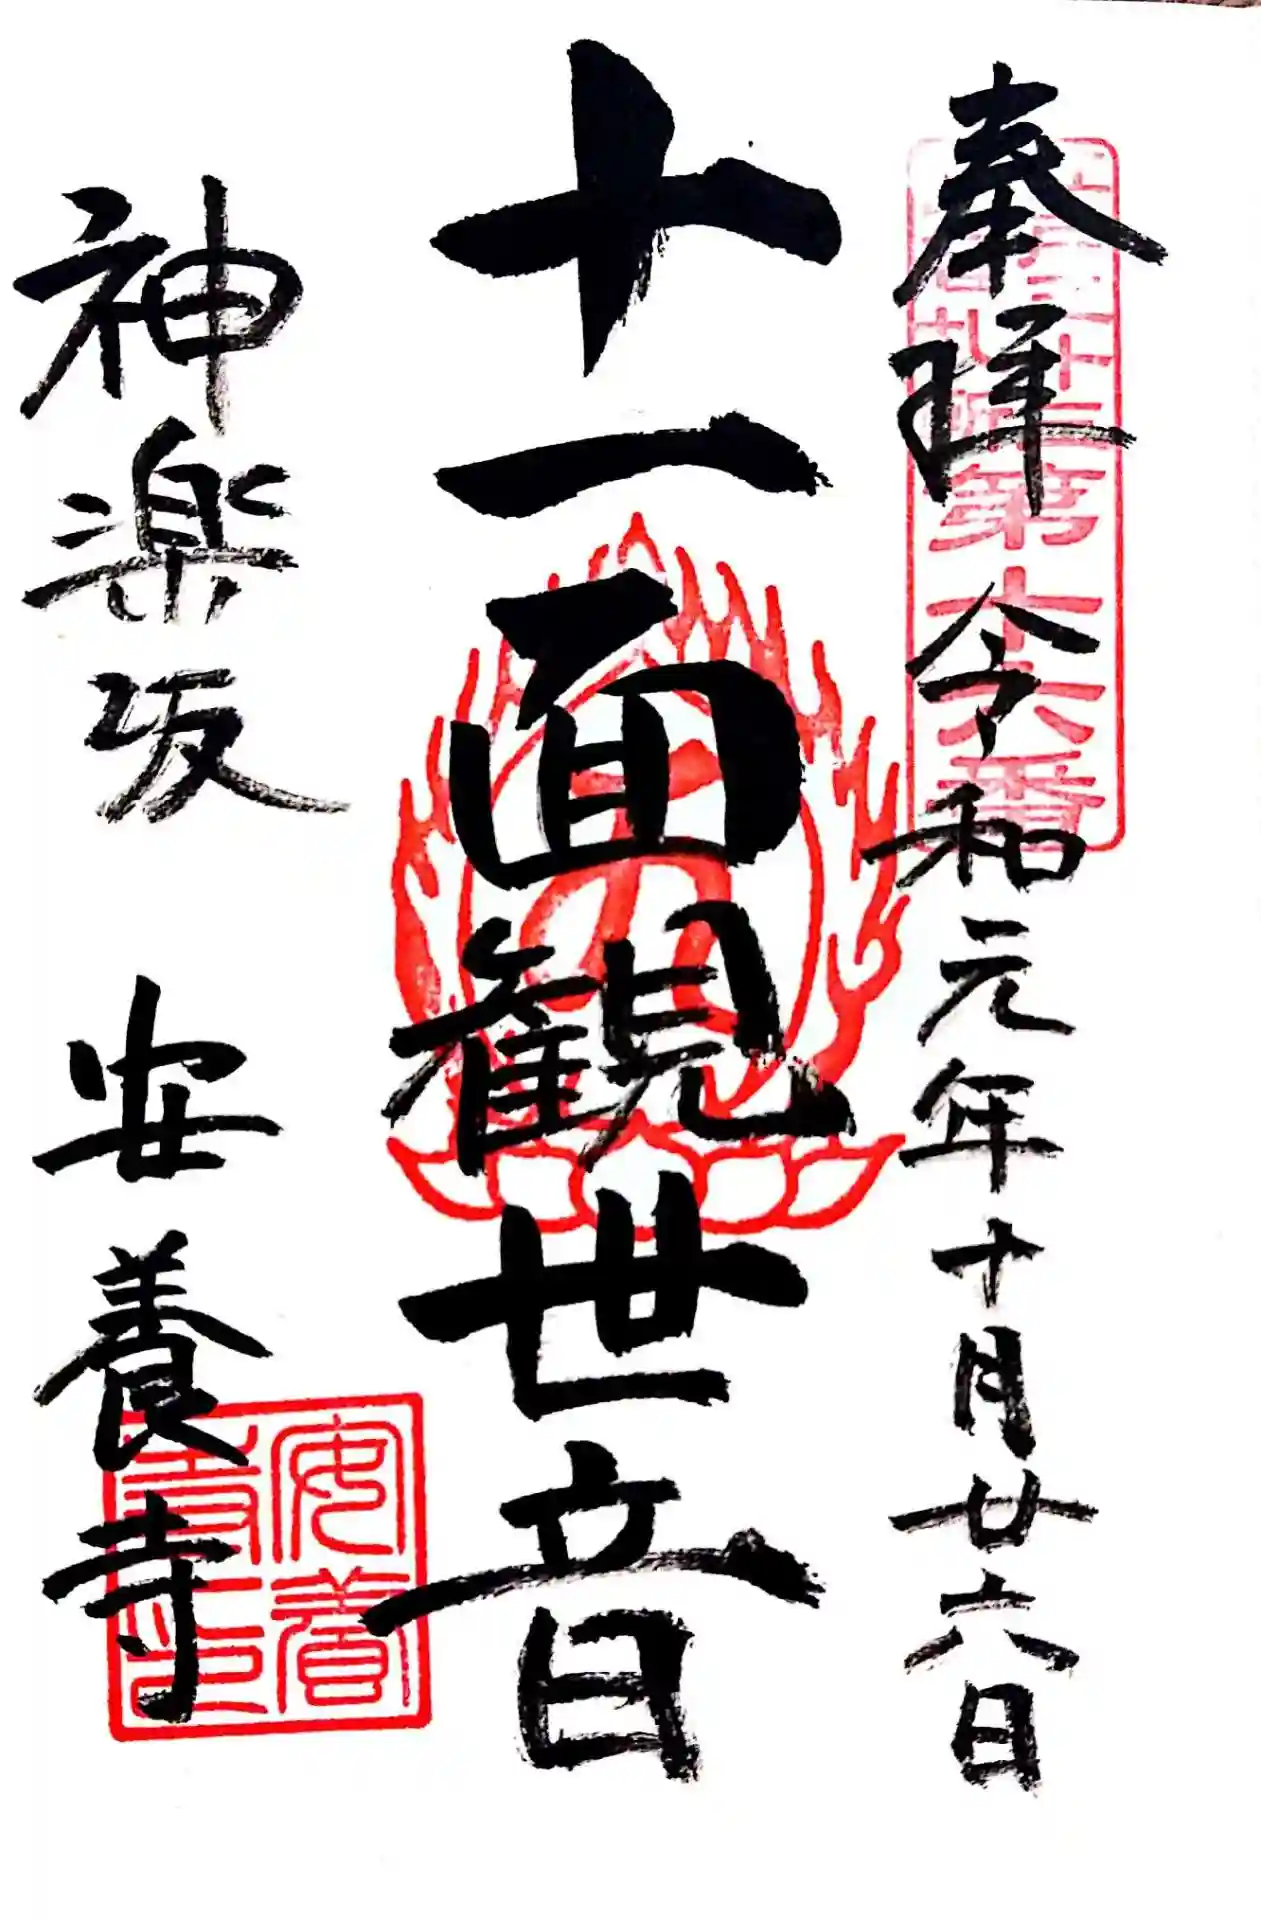 奉拝 令和元年十月廿六日
第十六番
十一面観世音
神楽坂 安養寺
安養
寺印